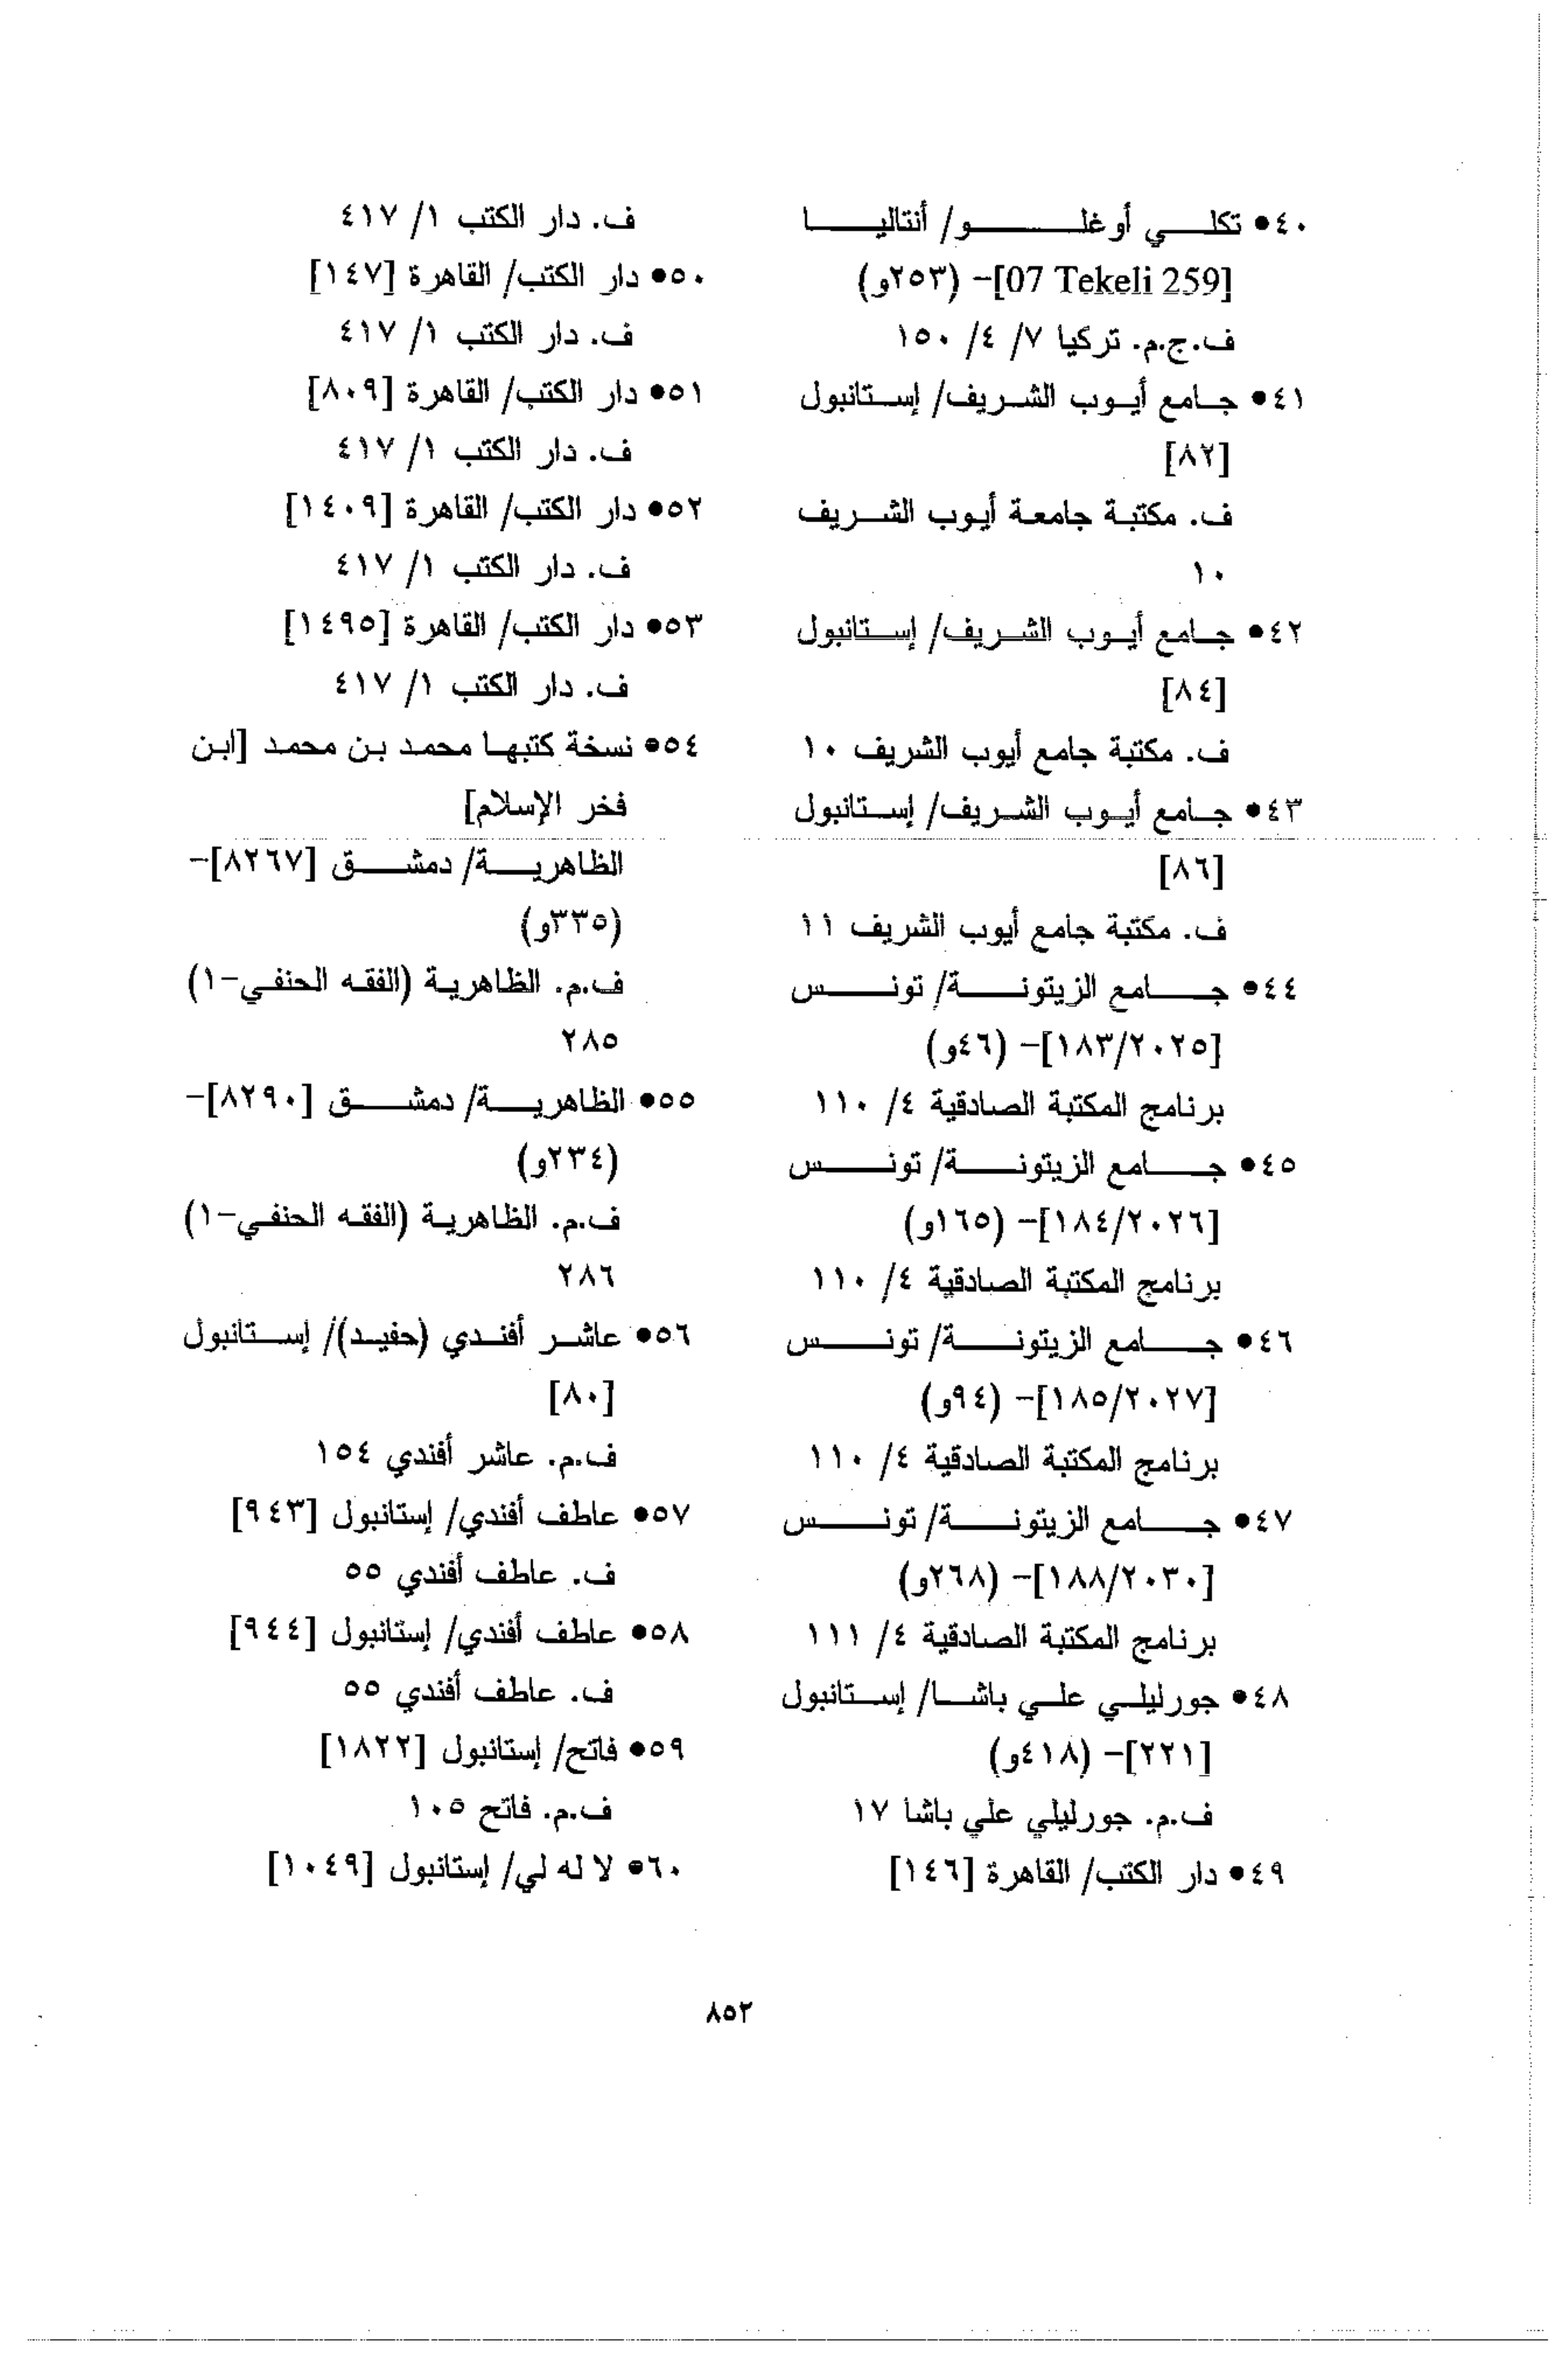 ٤٠● تكلي أوغلو/ أنتاليا
[07 Tekeli 259]– (٢٥٣و)
ف.ج.م. تركيا ٧/ ٤/ ١٥٠
٤١● جامع أيوب الشريف/ إستانبول
[٨٢]
ف. مكتبة جامعة أيوب الشريف
١٠
٤٢● جامع أيوب الشريف/ إستانبول
[٨٤]
ف. مكتبة جامع أيوب الشريف ١٠
٤٣● جامع أيوب الشريف/ إستانبول
[٨٦]
ف. مكتبة جامع أيوب الشريف ١١
٤٤● جامع الزيتونة/ تونس
[١٨٣/٢٠٢٥]– (٤٦و)
برنامج المكتبة الصادقية ٤/ ١١٠
٤٥● جامع الزيتونة/ تونس
[١٨٤/٢٠٢٦]– (١٦٥و)
برنامج المكتبة الصادقية ٤/ ١١٠
٤٦● جامع الزيتونة/ تونس
[١٨٥/٢٠٢٧]– (٩٤و)
برنامج المكتبة الصادقية ٤/ ١١٠
٤٧● جامع الزيتونة/ تونس
[١٨٨/٢٠٣٠]– (٢٦٨و)
برنامج المكتبة الصادقية ٤/ ١١١
٤٨● جورليلي علي باشا/ إستانبول
[٢٢١]– (٤١٨و)
ف.م. جورليلي علي باشا ١٧
٤٩● دار الكتب/ القاهرة [١٤٦]
ف. دار الكتب ١/ ٤١٧
٥٠● دار الكتب/ القاهرة [١٤٧]
ف. دار الكتب ١/ ٤١٧
٥١● دار الكتب/ القاهرة [٨٠٩]
ف. دار الكتب ١/ ٤١٧
٥٢● دار الكتب/ القاهرة [١٤٠٩]
ف. دار الكتب ١/ ٤١٧
٥٣● دار الكتب/ القاهرة [١٤٩٥]
ف. دار الكتب ١/ ٤١٧
٥٤● نسخة كتبها محمد بن محمد [ابن
فخر الإسلام]
الظاهرية/ دمشق [٨٢٦٧]–
(٣٣٥و)
ف.م. الظاهرية (الفقه الحنفي–١)
٢٨٥
٥٥● الظاهرية/ دمشق [٨٢٩٠]–
(٢٣٤و)
ف.م. الظاهرية (الفقه الحنفي–١)
٢٨٦
٥٦● عاشر أفندي (حفيد)/ إستانبول
[٨٠]
ف.م. عاشر أفندي ١٥٤
٥٧● عاطف أفندي/ إستانبول [٩٤٣]
ف. عاطف أفندي ٥٥
٥٨● عاطف أفندي/ إستانبول [٩٤٤]
ف. عاطف أفندي ٥٥
٥٩● فاتح/ إستانبول [١٨٢٢]
ف.م. فاتح ١٠٥
٦٠● لا له لي/ إستانبول [١٠٤٩]
٨٥٢